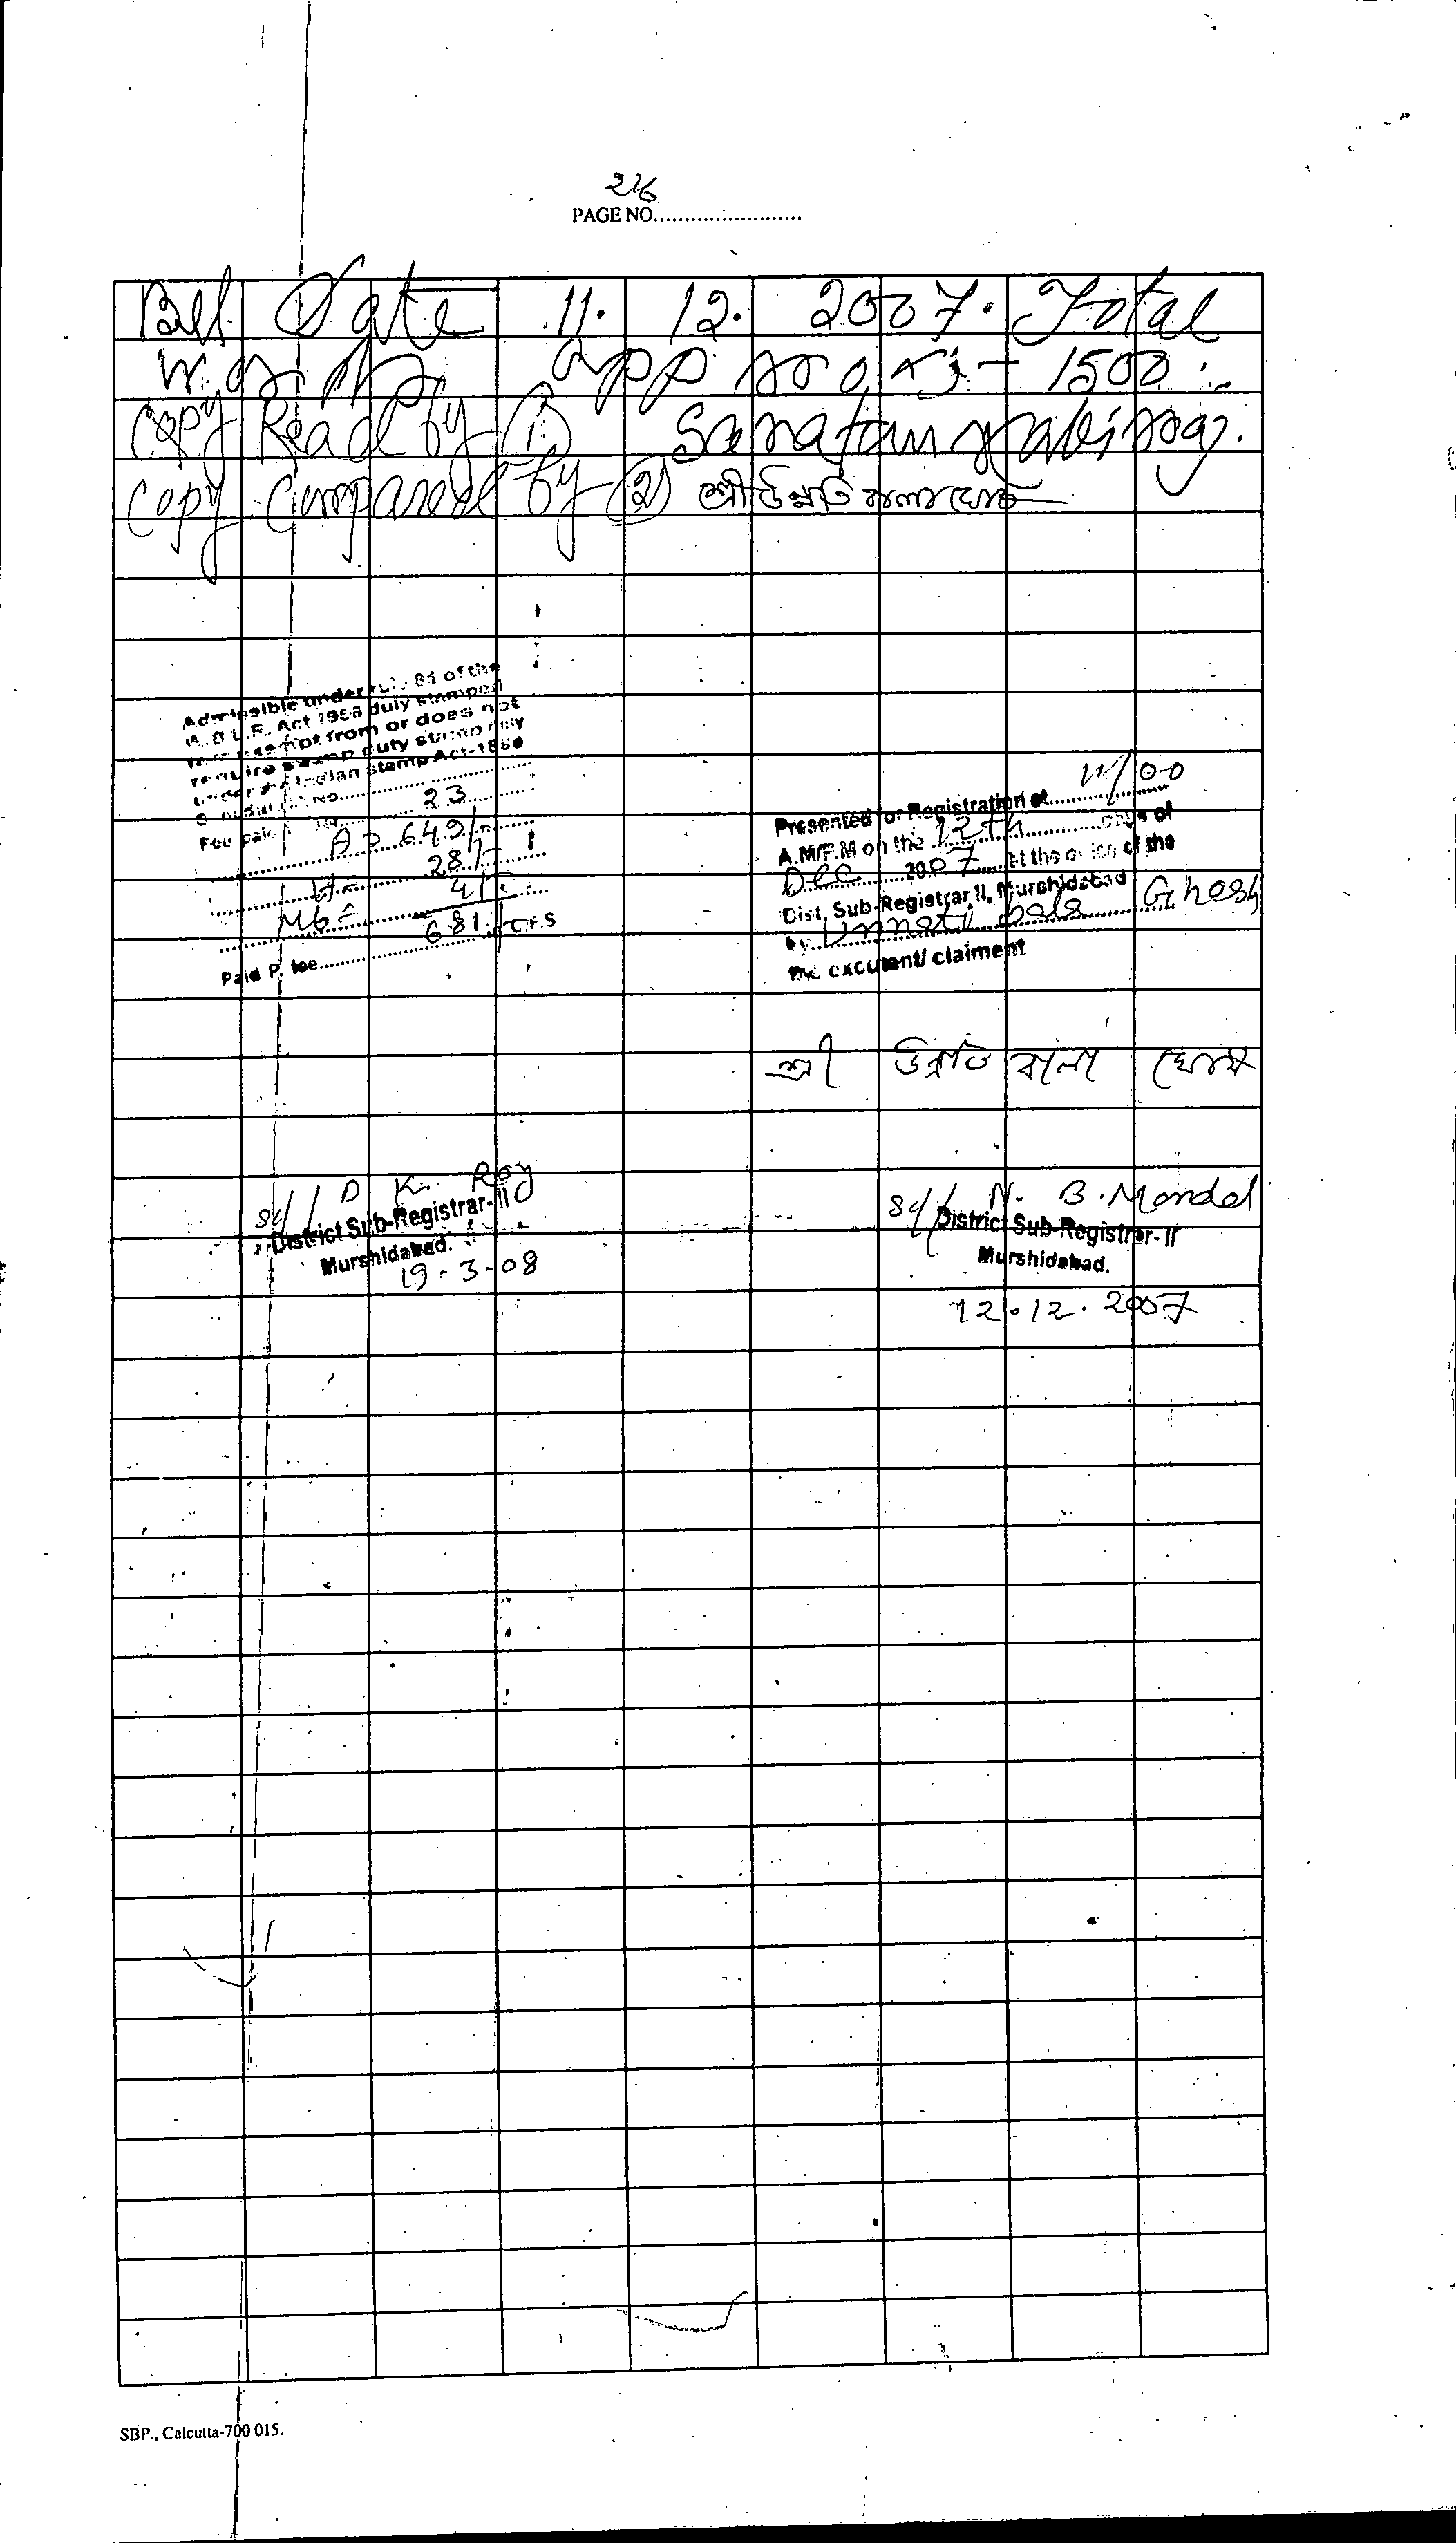 216
PAGE NO..........................
Date 11. 12. 2007. Total
words app - 1500
Copy Read by (1) Sanatan Kabiraj.
Copy Compared by (2) শ্রী উন্নতি বালা ঘোষ
Admissible under rule of the
W.B.L.R. Act duly stamped
exempt from or does not
require stamp duty stamp duty
under the Indian stamp Act-
No. 23
Fee paid
A = 649/-
28/-
4/-
681/-
Paid P. fee
11/00
Presented for Registration at
A.M/P.M on the 12th of
Dec 2007 at the office of the
Dist. Sub-Registrar II, Murshidabad
by Unnati bala Ghosh
the executent/ claiment
শ্রী উন্নতি বালা ঘোষ
Sd/- D K. Roy
District Sub-Registrar-II
Murshidabad.
19-3-08
Sd/- N. B. Mondal
District Sub-Registrar-II
Murshidabad.
12.12.2007
SBP., Calcutta-700 015.